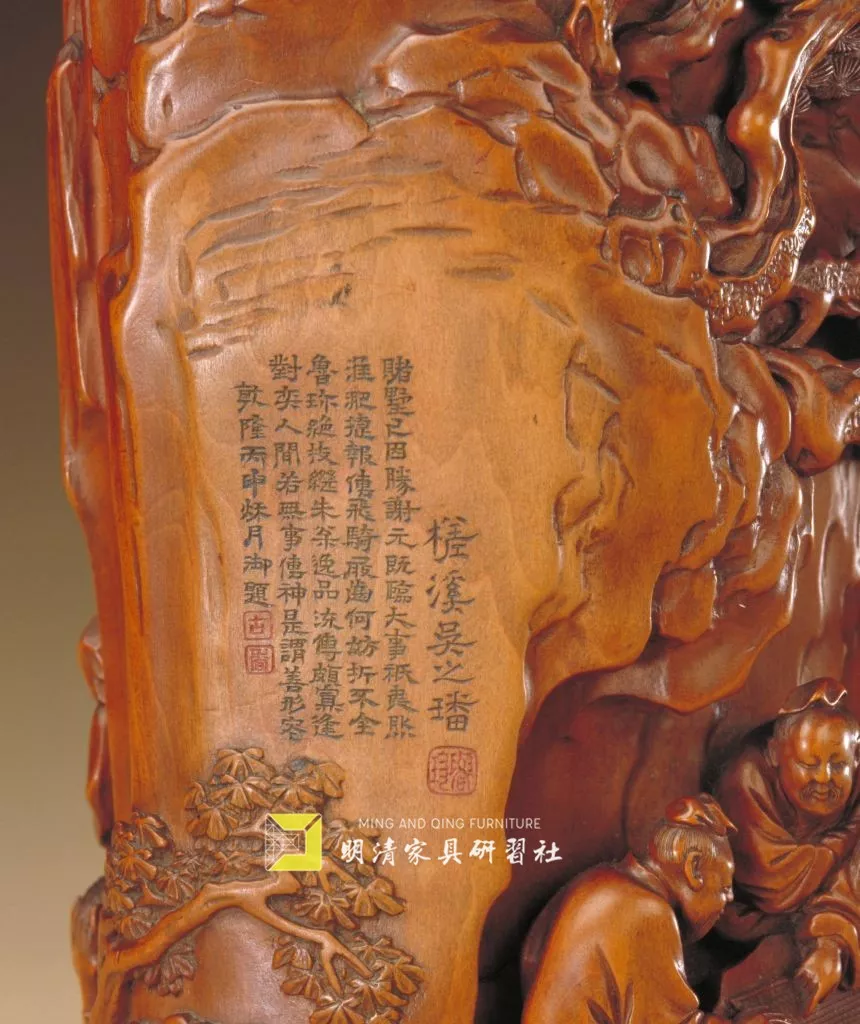 槎溪吳之璠
魯珍
賭墅已因勝謝元既臨大事祇夷肰
淮淝捷報傳飛騎屐齒何妨折不全
魯珍絕技繼朱枀逸品流傳頗寡逢
對奕人間若無事傳神是謂善形容
乾隆丙申秌月御題
古
MING AND QING FURNITURE
明清家具研習社